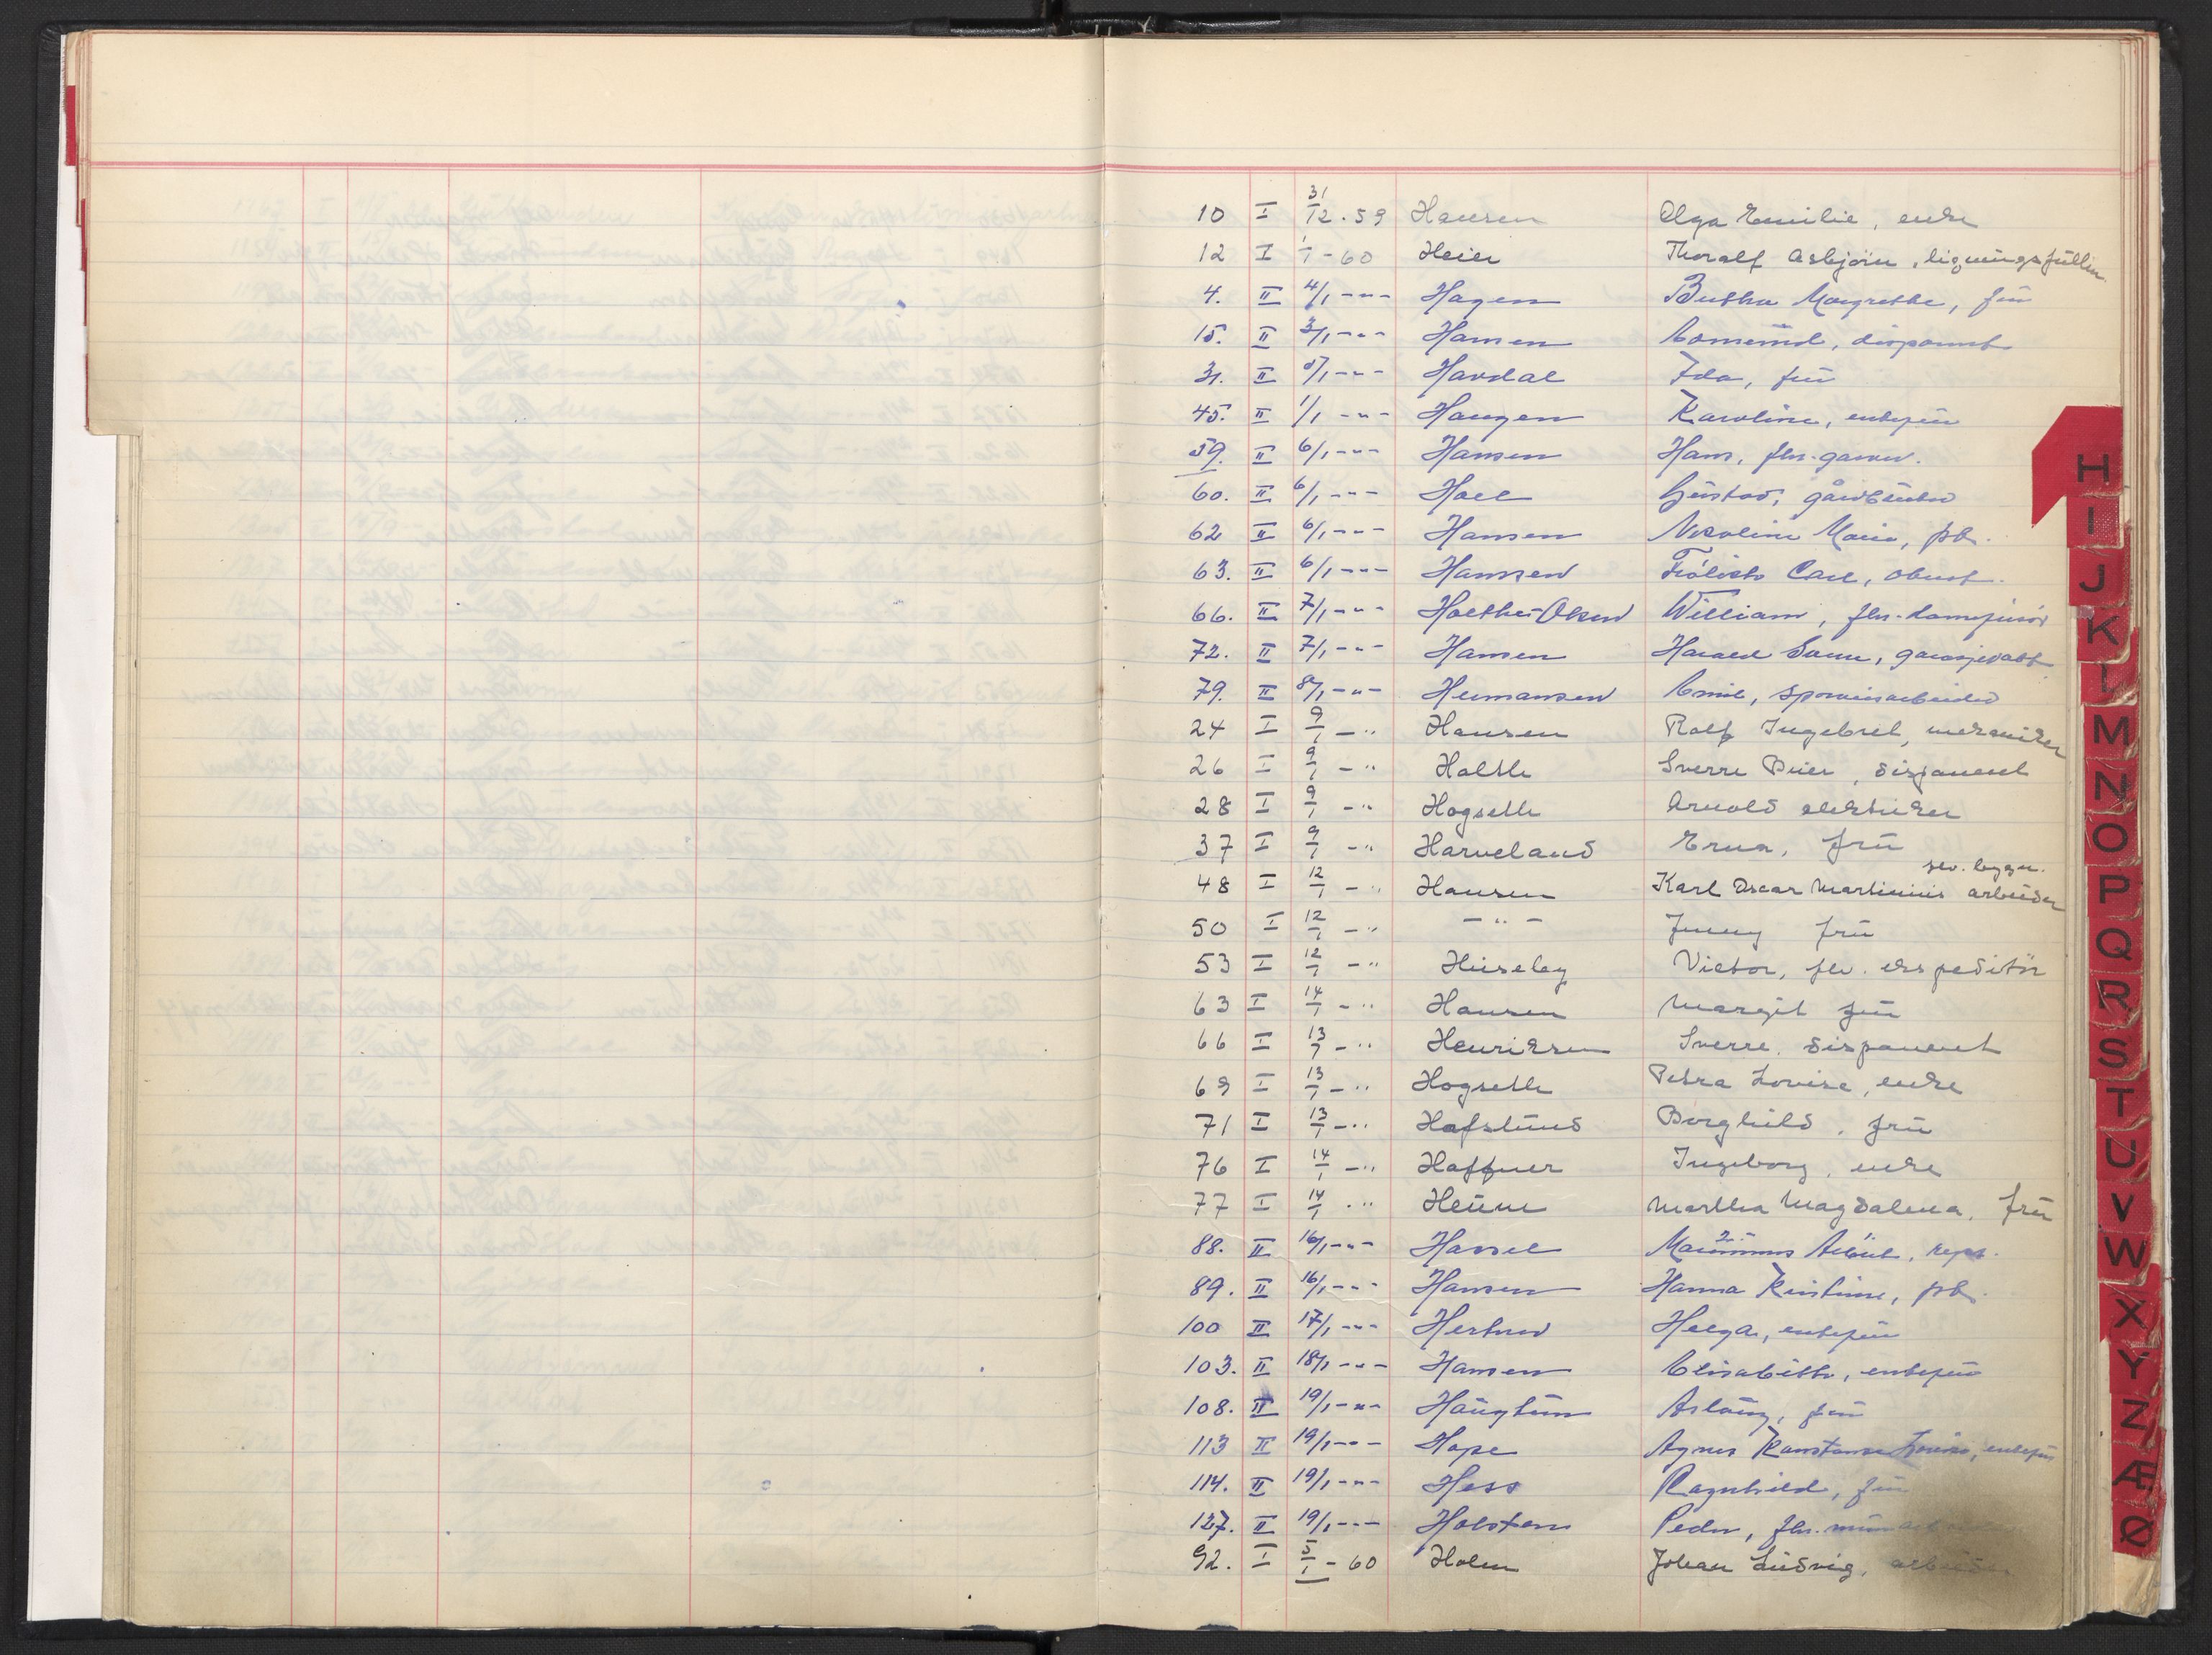 10 I 31/12.59 Hansen Olga Emilie, enke
12 I 1/1-60 Heier Thoralf Asbjørn, ligningsfullm.
4. II 4/1-"- Hagen Bertha Margrethe, frü
15. II 3/1-"- Hansen disponent
31. II 5/1-"- Hardal Ida, frü
45. II 1/1-"- Haugen Karoline, enkefrü
59. II 6/1-"- Hansen Hans, fhv. garver.
60. II 6/1-"- Hoel Güstav, gårdbrüker
62 II 6/1-"- Hansen Nikoline Marie, pb.
63. II 6/1-"- Hansen Carl, oberst.
66. II 7/1-"- Holther-Olsen William, fhv. damefrisør
72. II 7/1-"- Hansen Harald
79. II 8/1-"- Hermansen Emil, sporveisarbeider
24 I 9/1-" Hansen Rolf Ingebret, mekaniker
26 I 9/1-" Holth Sverre Peter, disponent
28 I 9/1-" Hogseth Arnold elektriker
37 I 9/1-" Harveland Erna, frü
48 I 12/1-" Hansen Karl Oscar Martinius arbeider
50 I 12/1-" -"- Jenny frü
53 I 12/1-" Hüseby Victor, fhv. ekspeditør
63 I 14/1-" Hansen Margit frü
66 I 13/1-" Henriksen Sverre, disponent
69 I 13/1-" Hogseth Petra Lovise, enke
71 I 13/1-" Hafslünd Borghild, frü
76 I 14/1-" Haffner Ingeborg, enke
77 I 14/1-" Heüm Martha Magdalena, frü
88. II 16/1-"- Hassel repr.
89. II 16/1-"- Hansen Hanna Kristine, pb.
100 II 17/1-"- Helga, enkefrü
103. II 18/1-"- Hansen Elisabeth, enkefrü
108. II 19/1-"- Haügtün Aslaüg, frü
113 II 19/1-"- Hope Agnes Konstanse Lovise, enkefrü
114. II 19/1-"- Hess Ragnhild, frü
127. II 19/1-"- Holsten Peder, fhv.
92. I 5/1-60 Holm Johan Lüdvig, arbeider
H
I
J
K
L
M
N
O
P
Q
R
S
T
U
V
W
X
Y
Z
Æ
Ø